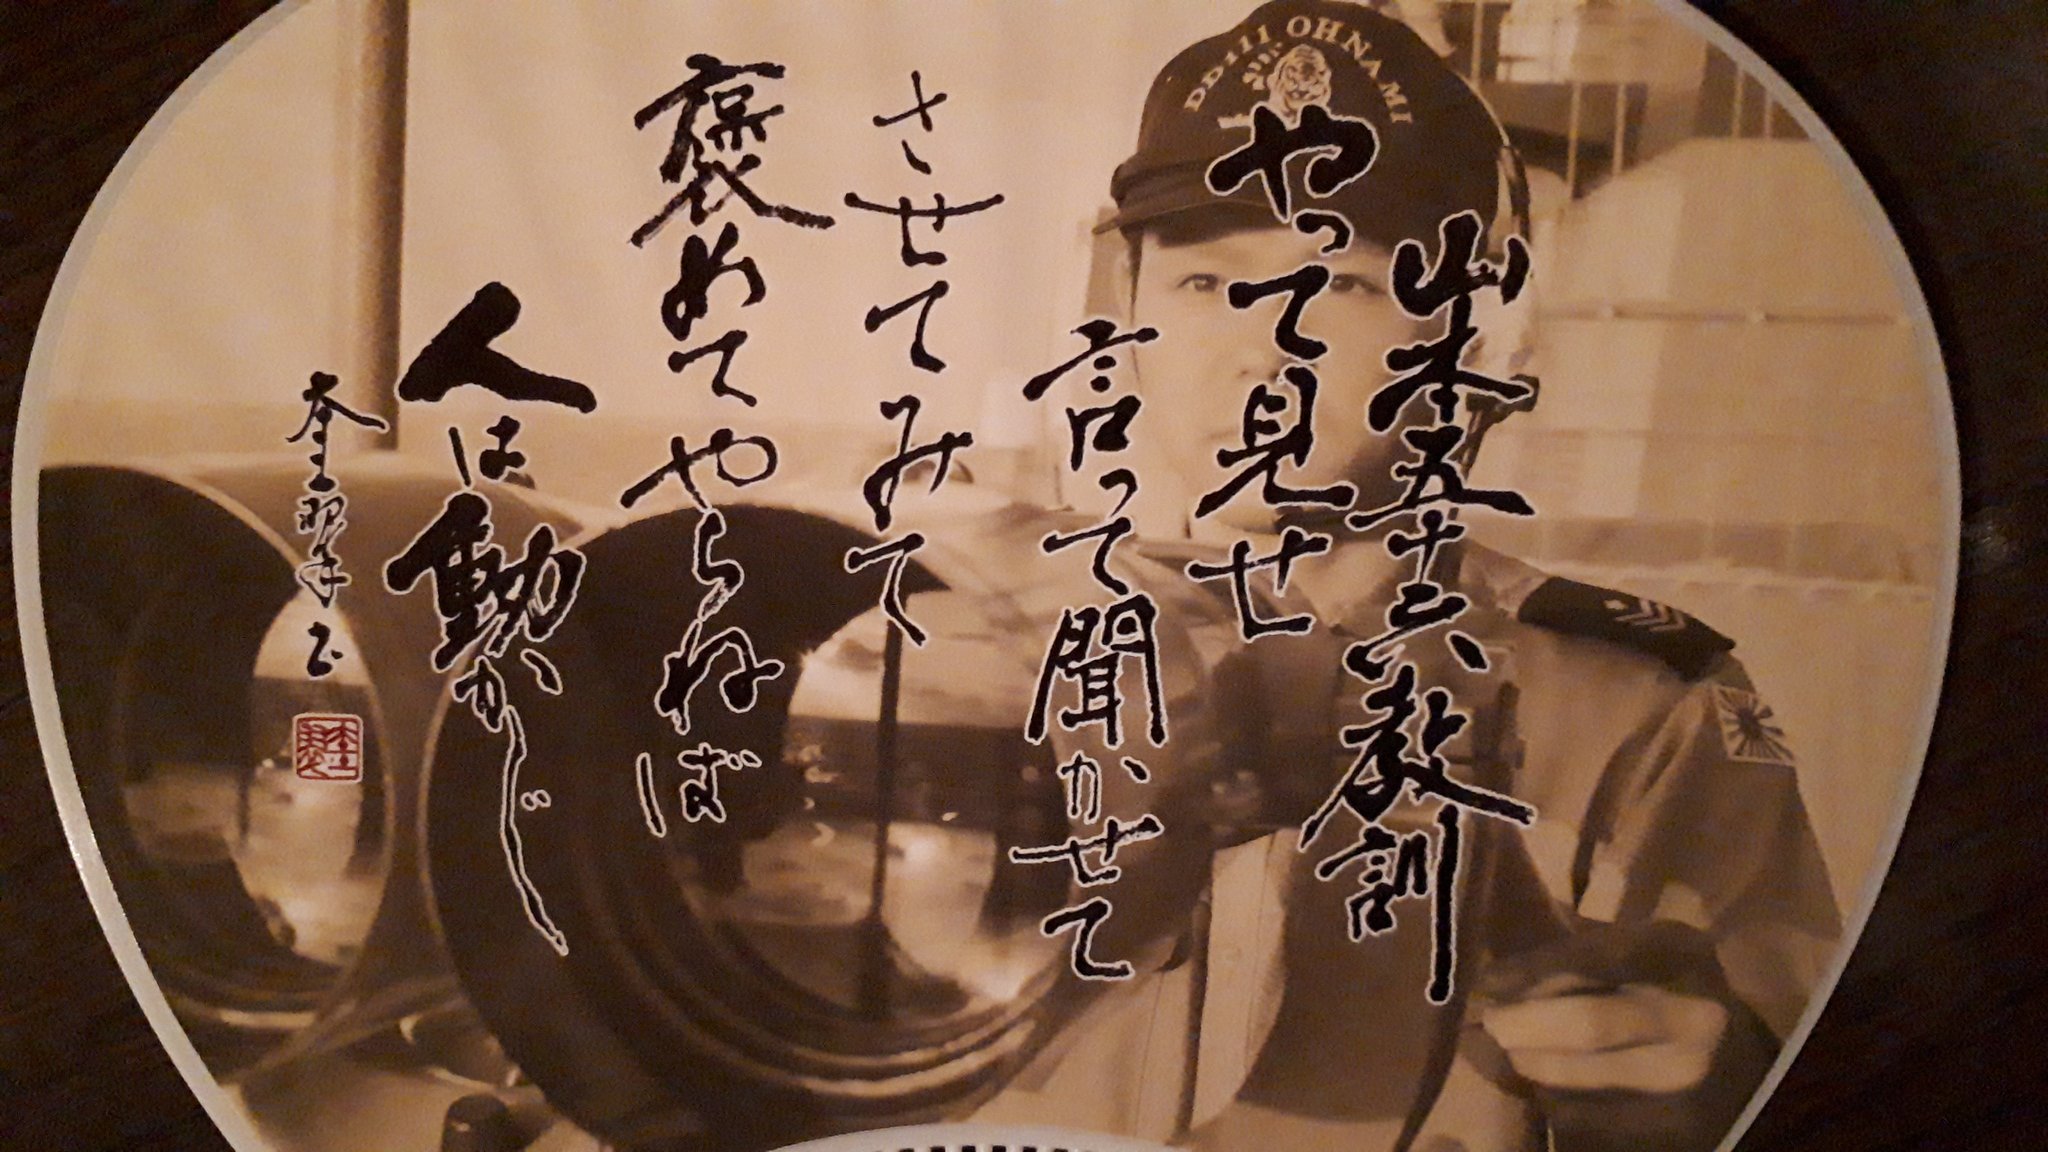 DD-111 OHNAMI
山本五十六教訓
やって見せ
言って聞かせて
させてみて
褒めてやらねば
人は動かじ